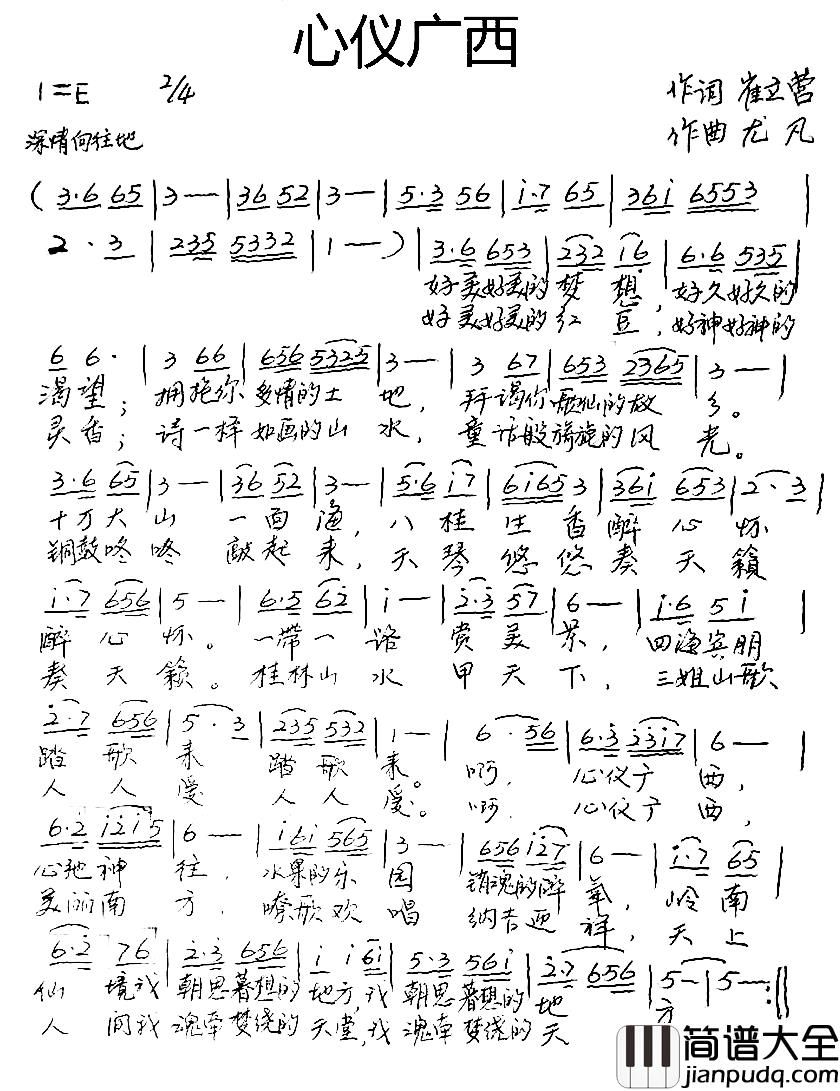 心仪广西
1=E 2/4 作词 崔立营
深情向往地 作曲 尤凡
(3·6 65|3—|36 52|3—|5·3 56|i·7 65|36i 6553|
2·3|235 5332|1—)|3·6 653|232 i6|6·6 535|
好美好美的梦想,好久好久的
好美好美的红豆,好神好神的
6 6·|3 66|656 5325|3—|3 67|653 2365|3—|
渴望;拥抱你多情的土地,拜谒你歌仙的故乡。
灵香;诗一样如画的山水,童话般旖旎的风光。
3·6 65|3—|36 52|3—|5·6 i7|6i65 3|36i 653|2·3|
十万大山一面海,八桂生香醉心怀
铜鼓咚咚敲起来,天琴悠悠奏天籁
i·7 656|5—|6·5 62|i—|2·3 57|6—|i·6 5i|
醉心怀。一带一路赏美景,四海宾朋
奏天籁。桂林山水甲天下,三姐山歌
2·7 656|5·3|235 532|1—|6·56|6·3 23i7|6—|
踏歌来踏歌来。啊,心仪广西,
人人爱人人爱。啊,心仪广西,
6·2 i2i5|6—|i6i 565|3—|656 i27|6—|i·7 65|
心驰神往,水果的乐园销魂的醉氧,岭南
美丽南方,嘹歌欢唱纳吉迎祥,天上
6·2 76|2·3 656|i i 6i|5·3 56i|2·7 656|5—|5—:||
仙境我朝思暮想的地方,我朝思暮想的地方
人间我魂牵梦绕的天堂,我魂牵梦绕的天
简谱大全
jianpudq.com